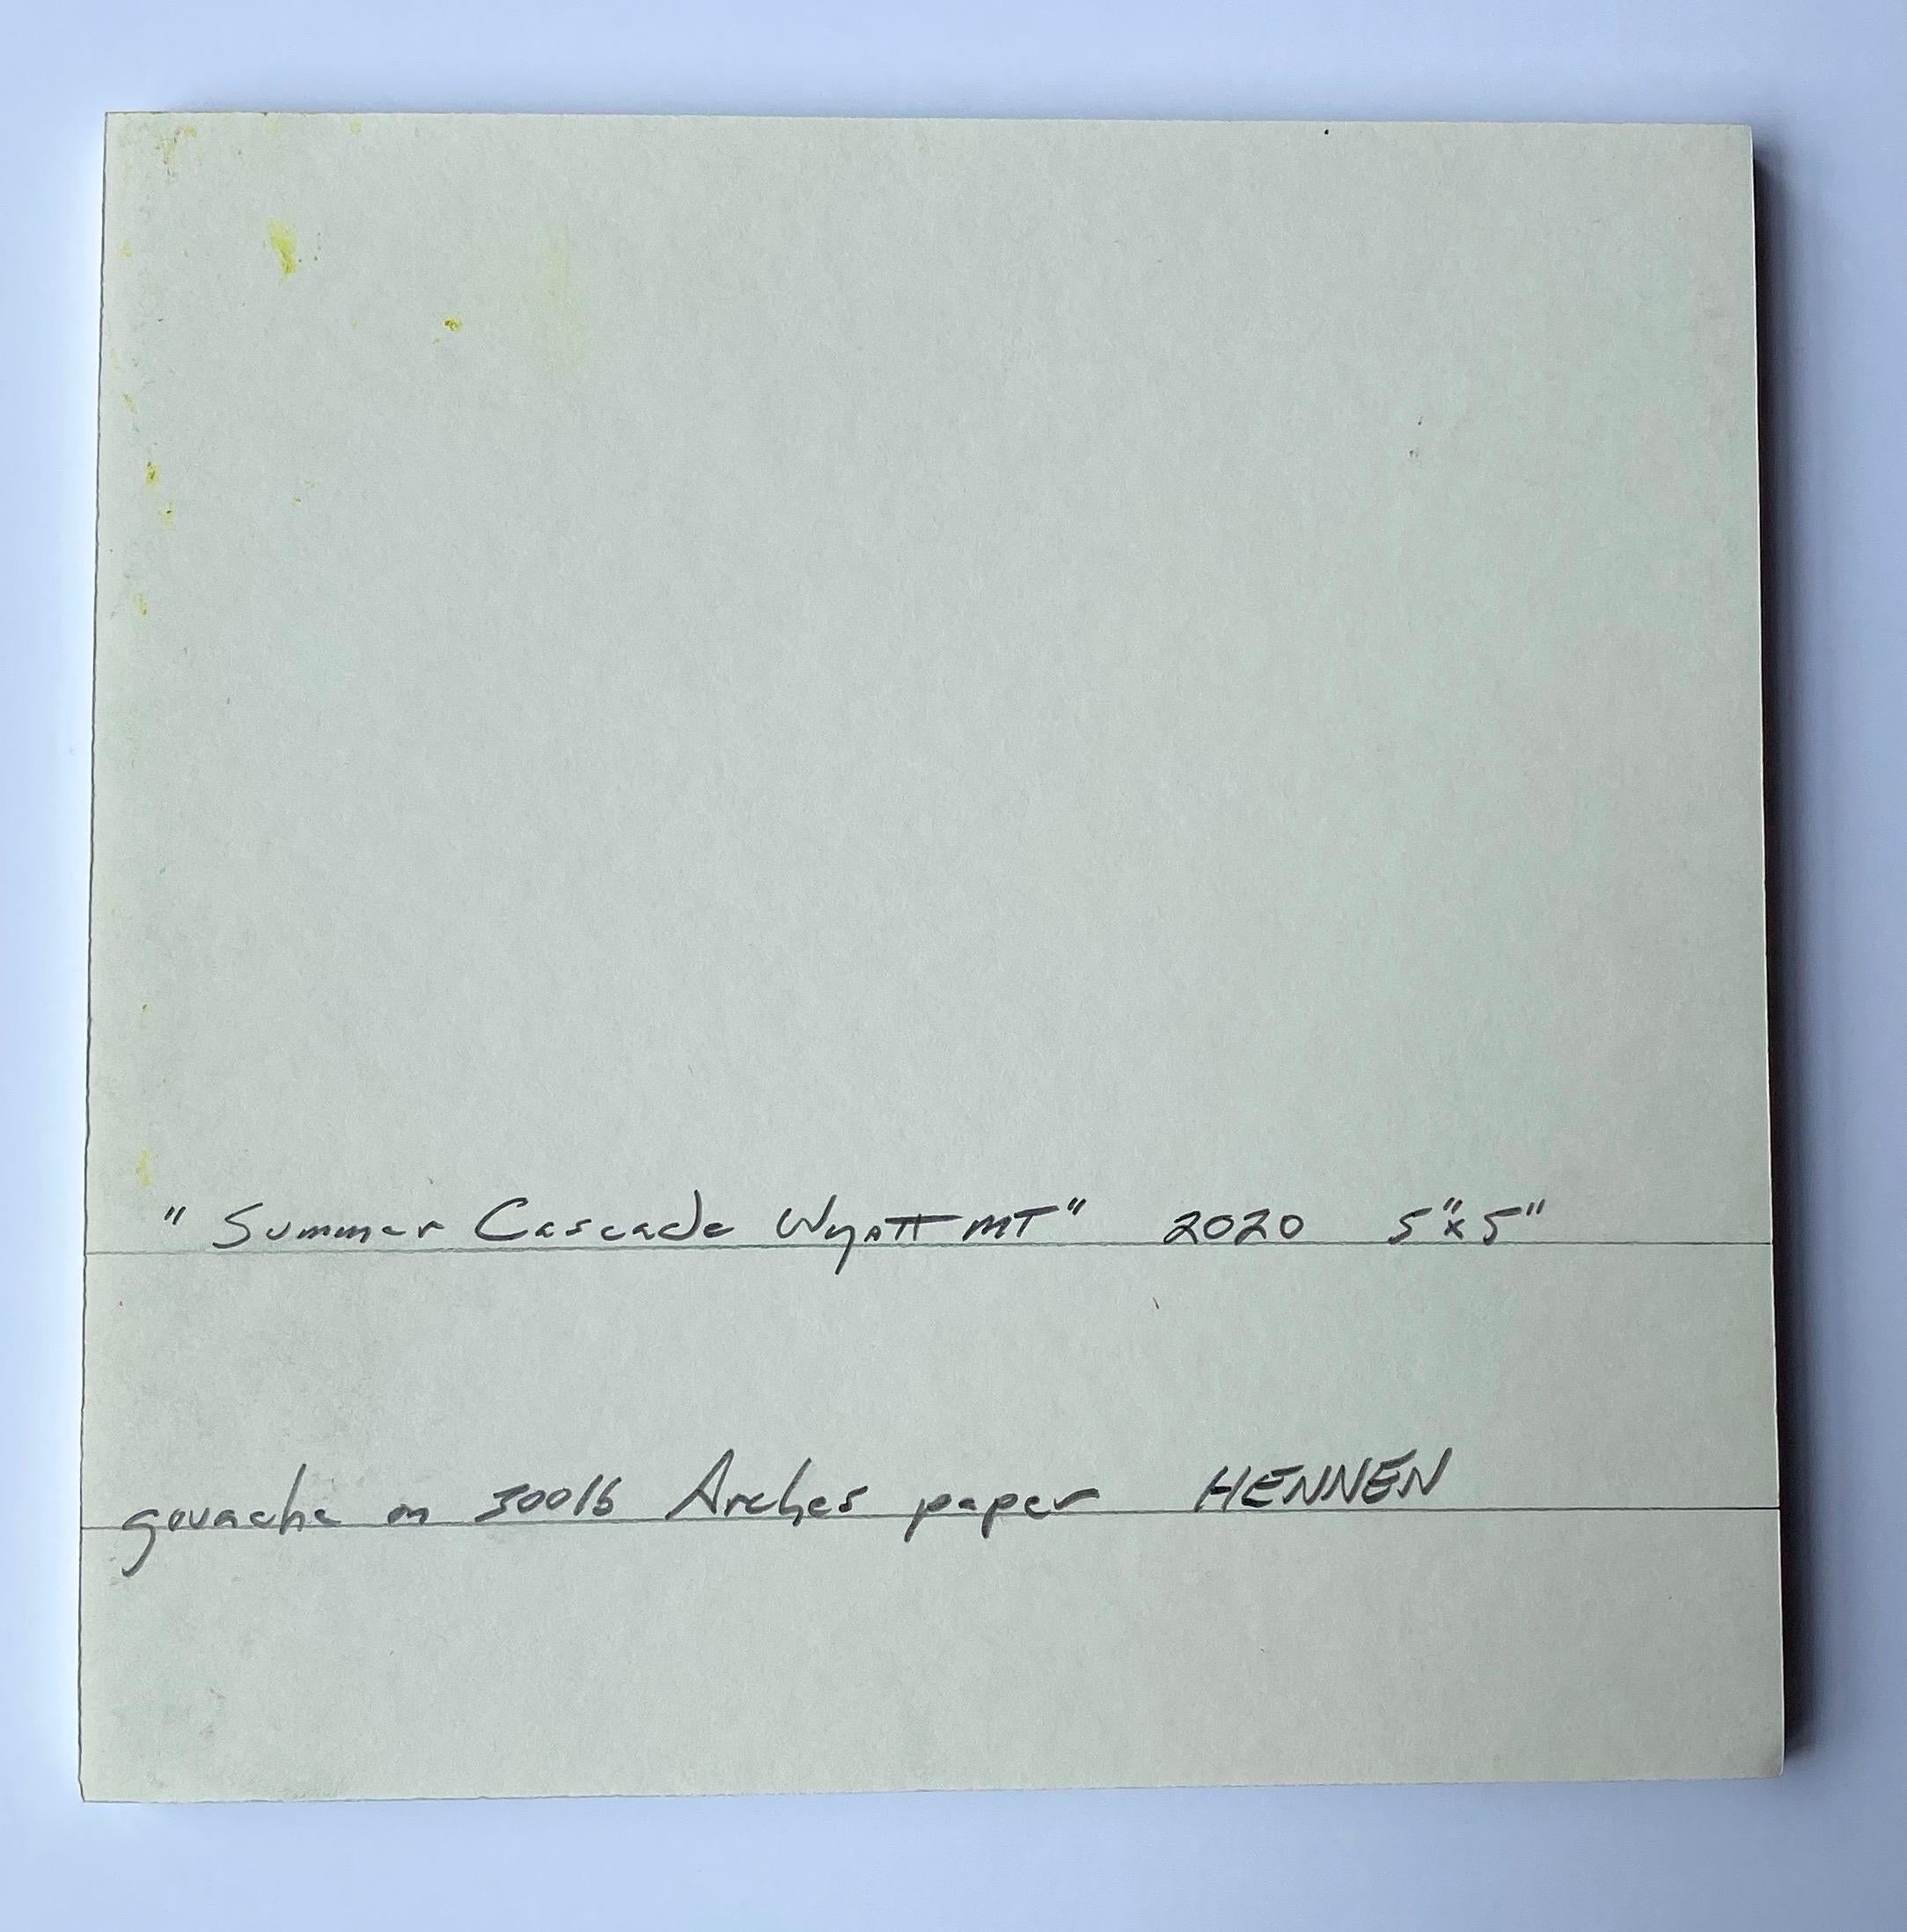 "Summer Cascade Wyatt MT" 2020 5"x5"
gouache on 300lb Arches paper HENNEN